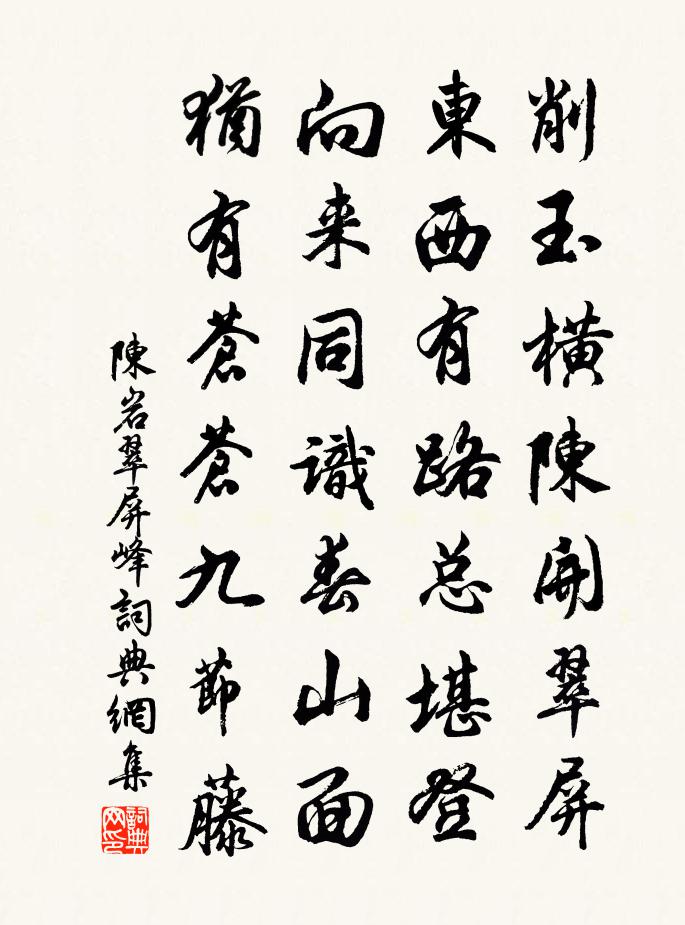 削玉橫陳開翠屏
東西有路总堪登
向来同識春山面
猶有蒼蒼九節藤
陳岩翠屏峰詞典網集
詞典網印